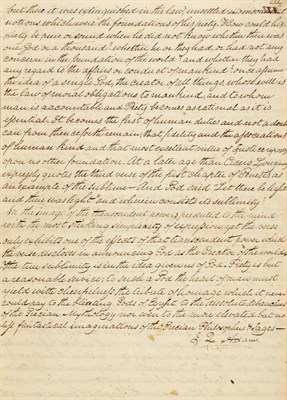 but that it was extinguished in the
notions which were the foundations of his piety. How could his
piety be pure or sound when he did not know whether there was
one God or a thousand whether he or they had or had not any
concern in the foundation of the world and whether they had
any regard to the affairs or conduct of mankind once assume
the idea of a single God, the creator of all things whose will is
the law of moral obligations to mankind, and to whom
man is accountable and Piety becomes as rational as it is
essential. It becomes the first of human duties and not a doubt
can from thenceforth remain that fidelity and the associations
of human kind and that most excellent virtue of Justice repose
upon no other foundation. At a later age than Cicero Longinus
expressly quotes the third verse of the first chapter of Genesis as
an example of the sublime — And God said Let there be light
and there was light and wherein consists its sublimity
In the image of the transcendent power presented to the mind
with the most striking simplicity of expression yet this verse
only exhibits one of the effects of that transcendent power which
the verse discloses in announcing God as the Creator of the world
The true sublimity is in the idea given us of God. Piety is but
a reasonable service to such a God the heart of man must
yield with cheerfulness the tribute of homage which it never
could pay to the bleating Gods of Egypt to the dissolute debauchees
of the Grecian Mythology nor even to the more elevated but no
less fantastical imaginations of the Grecian Philosophers & Sages —
J Q Adams